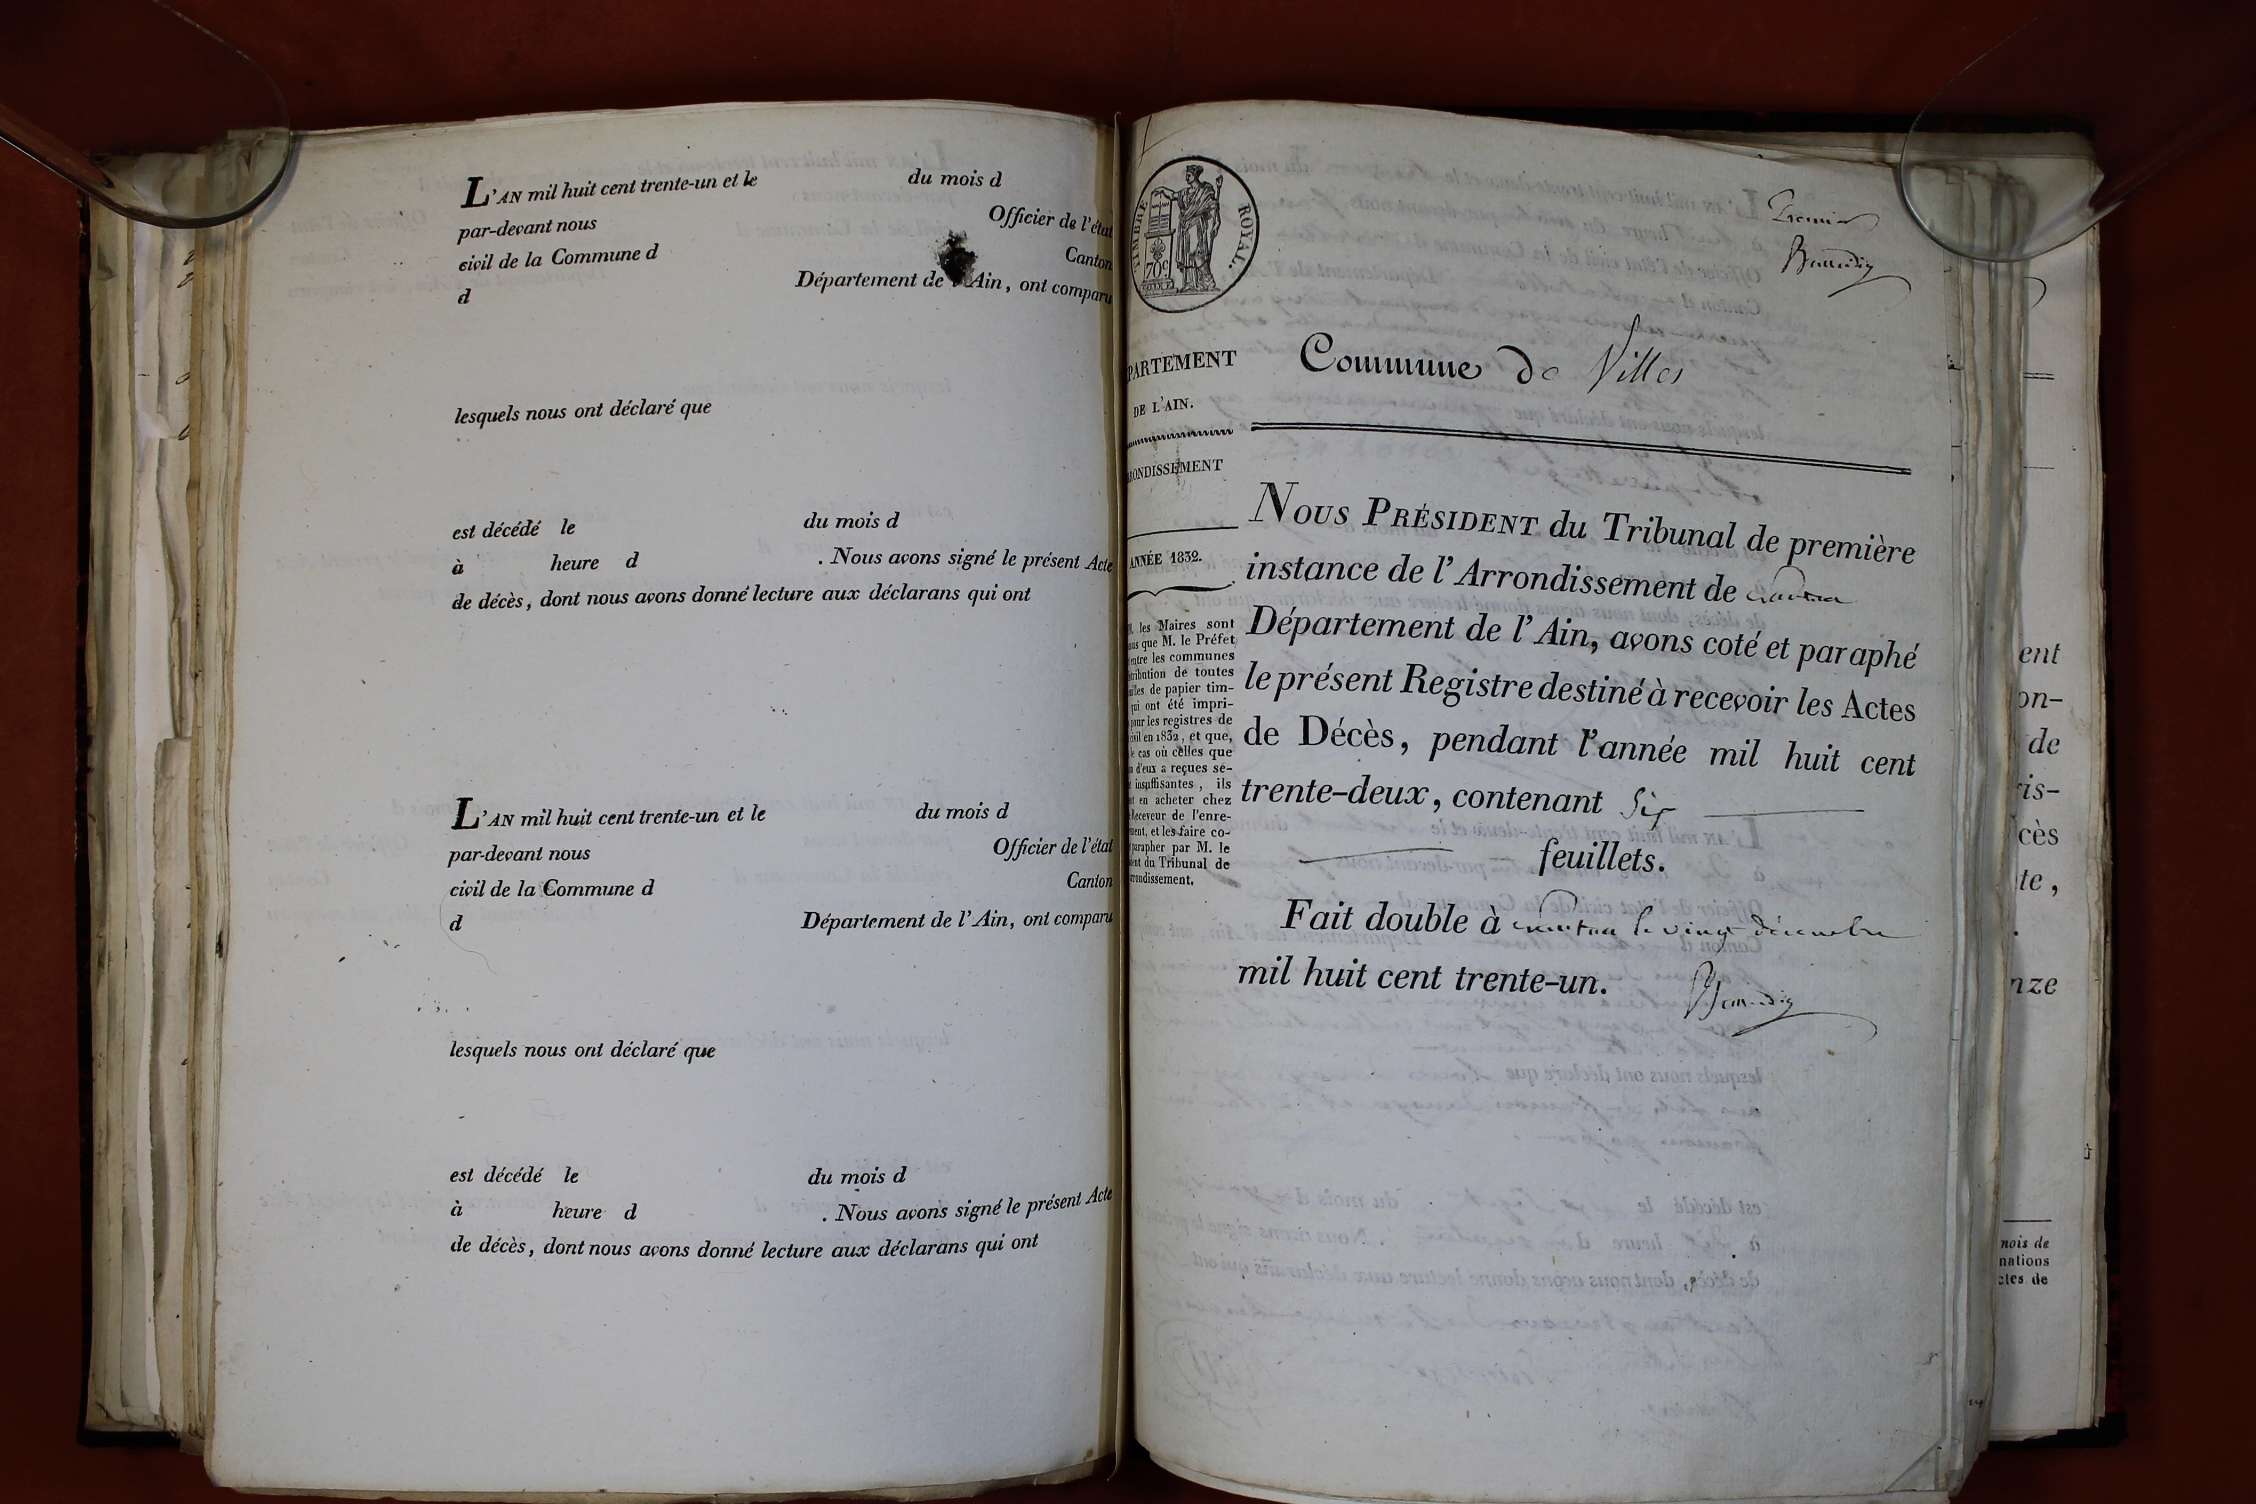 L'AN mil huit cent trente-un et le du mois d
par-devant nous Officier de l'état
civil de la Commune d Canton
d Département de l'Ain, ont comparu
lesquels nous ont déclaré que
est décédé le du mois d
à heure d . Nous avons signé le présent Acte
de décès, dont nous avons donné lecture aux déclarans qui ont
L'AN mil huit cent trente-un et le du mois d
par-devant nous Officier de l'état
civil de la Commune d Canton
d Département de l'Ain, ont comparu
lesquels nous ont déclaré que
est décédé le du mois d
à heure d . Nous avons signé le présent Acte
de décès, dont nous avons donné lecture aux déclarans qui ont
TIMBRE ROYAL.
70c
Premier
PARTEMENT
DE L'AIN.
RONDISSEMENT
ANNÉE 1832.
M. les Maires sont
que M. le Préfet
entre les communes
tribution de toutes
de papier tim-
qui ont été impri-
pour les registres de
civil en 1832, et que,
le cas où celles que
d'eux a reçues se-
insuffisantes, ils
en acheter chez
Receveur de l'enre-
ment, et les faire co-
parapher par M. le
du Tribunal de
rondissement.
Commune de Villes
NOUS PRÉSIDENT du Tribunal de première
instance de l'Arrondissement de nantua
Département de l'Ain, avons coté et paraphé
le présent Registre destiné à recevoir les Actes
de Décès, pendant l'année mil huit cent
trente-deux, contenant Six
feuillets.
Fait double à nantua le vingt décembre
mil huit cent trente-un.
ent
on-
de
ris-
cès
te,
nze
mois de
nations
ctes de